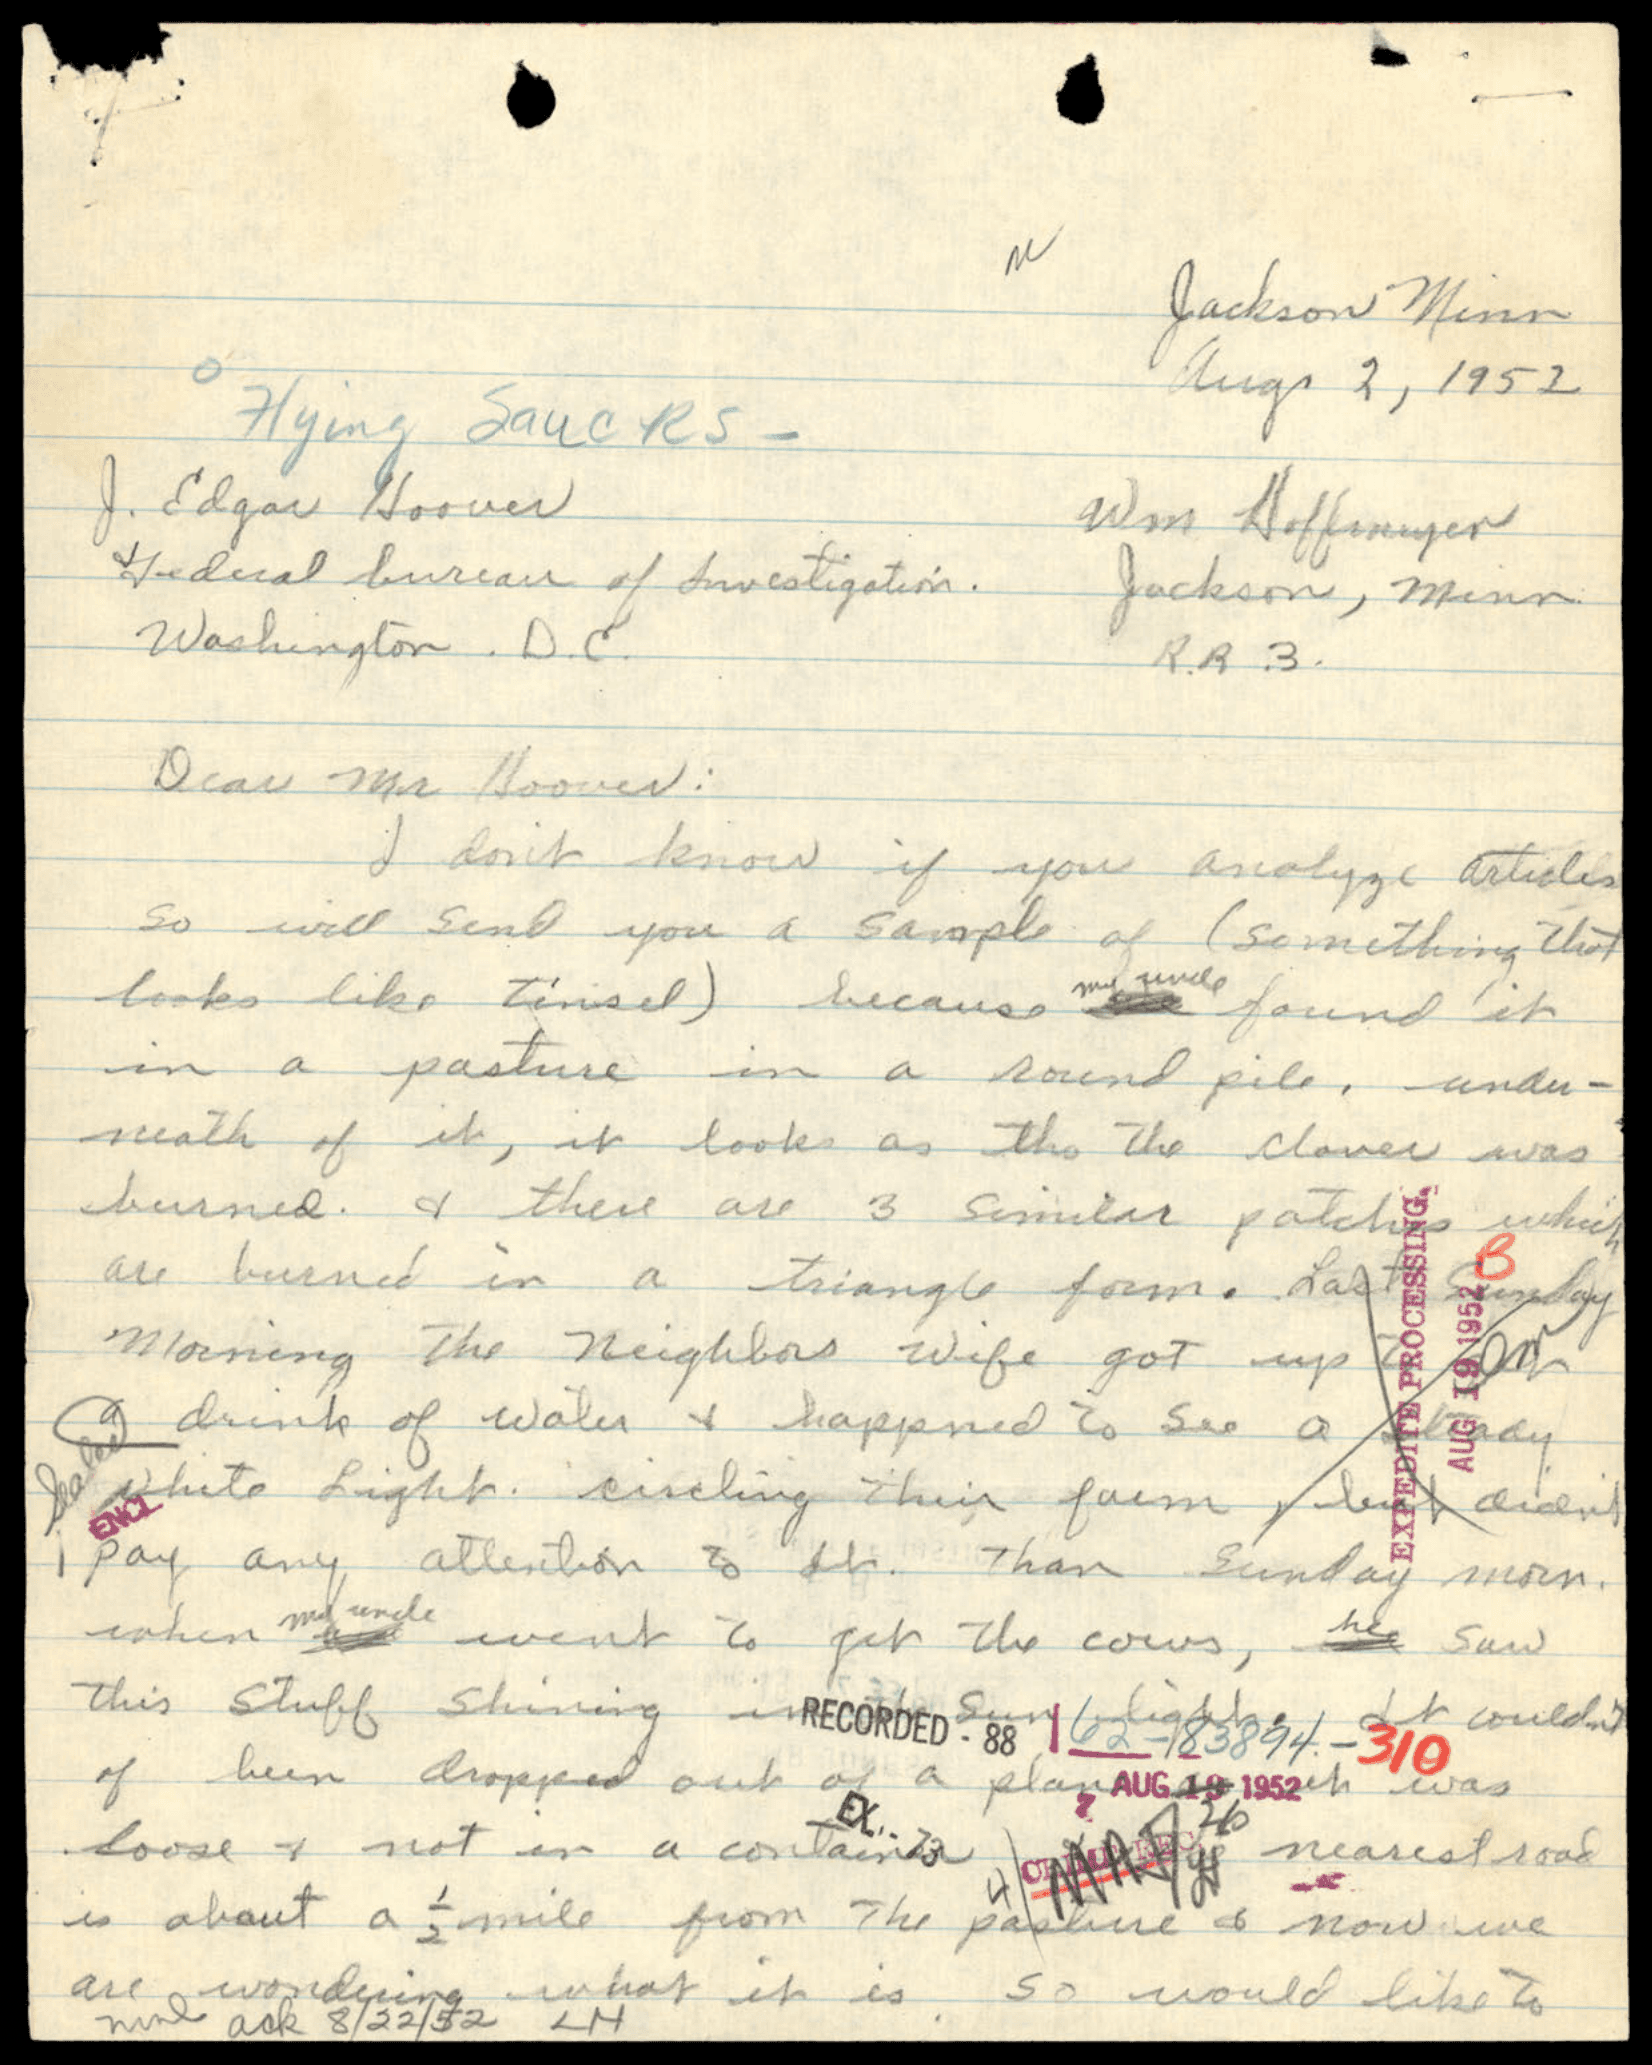 Jackson Minn
Aug 2, 1952
Flying Saucers –
J. Edgar Hoover
Federal bureau of Investigation.
Washington. D.C.
Wm Hoffmeyer
Jackson, Minn.
R.R 3.
Dear Mr Hoover:
I don't know if you analyze articles
so will send you a sample of (something that
looks like tinsel) because my uncle found it
in a pasture in a round pile. under-
neath of it, it looks as tho the clover was
burned. & there are 3 similar patches which
are burned in a triangle form. Last Sunday
Morning the Neighbors Wife got up to
a drink of water & happned to see a steady
white Light. circling their farm, but didn't
pay any attention to it. Than Sunday morn.
when my uncle went to get the cows, he saw
this stuff shining in the Sun light. It couldn't
of been dropped out of a plane it was
loose & not in a container nearest road
is about a 1/2 mile from the pasture & now we
are wondering what it is. so would like to
ack 8/22/52 LH
EXPEDITE PROCESSING.
AUG 19 1952
B
Sealed
ENCL
RECORDED - 88
62-83894-310
AUG 19 1952
EX.-